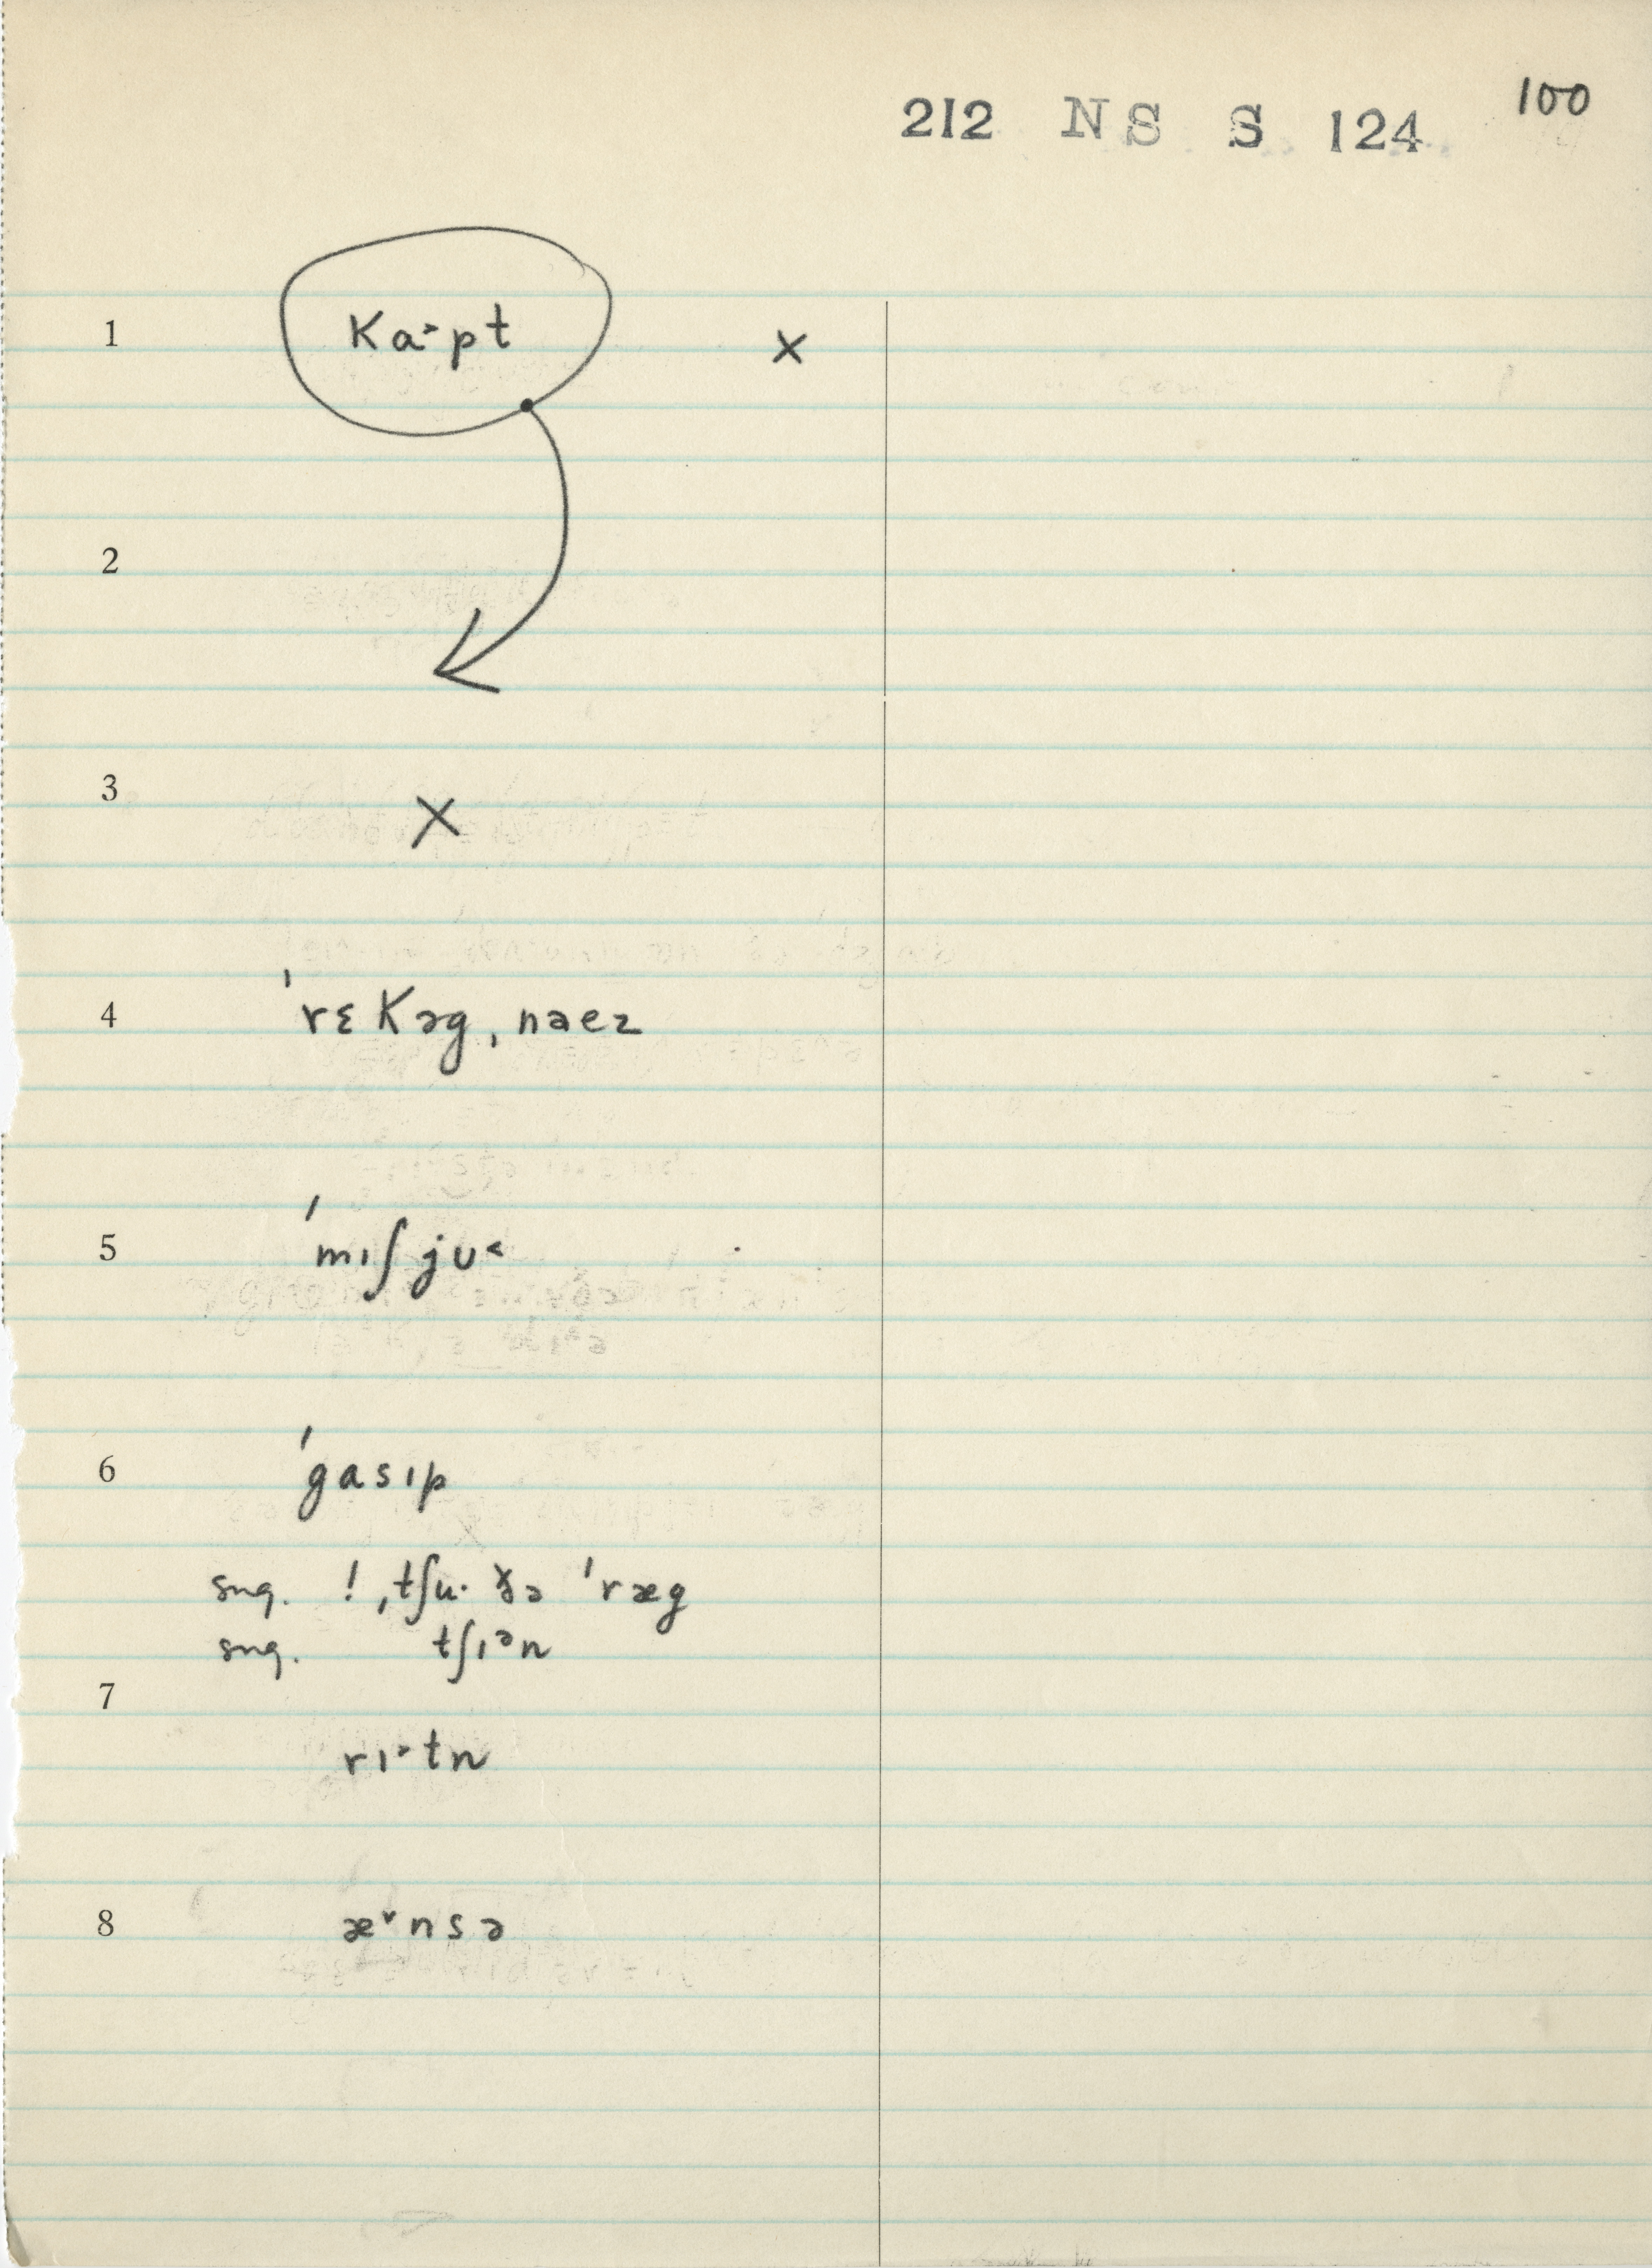 100
212 NS S 124
1 ka˃pt ×
2
3 ×
4 ˈrɛkəgˌnaez
5 ˈmɪʃjʊ˂
6 ˈgasɪp
sug. ! ˌtʃu· ðə ˈræg
sug. tʃɪᵊn
7
rɪ˃tn
8 æ˅nsə